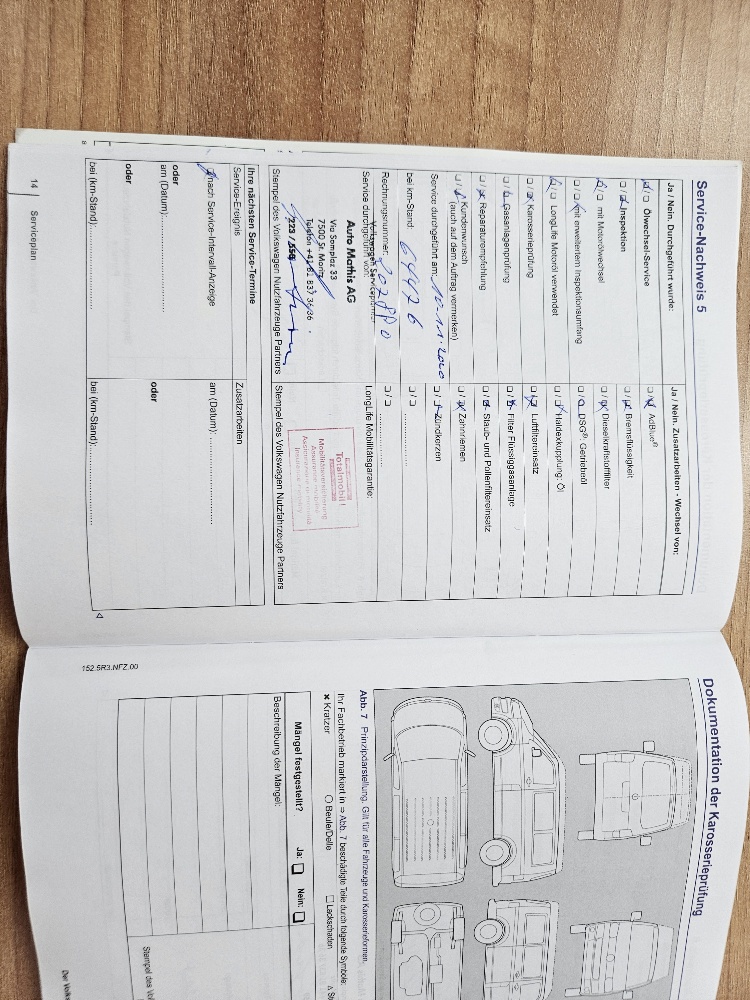 Service-Nachweis 5
Ja / Nein. Durchgeführt wurde:
Ölwechsel-Service
Inspektion
mit Motorölwechsel
mit erweitertem Inspektionsumfang
LongLife Motoröl verwendet
Karosserieprüfung
Gasanlagenprüfung
Reparaturempfehlung
Kundenwunsch
(auch auf dem Auftrag vermerken)
Service durchgeführt am:
bei km-Stand: 64476
Rechnungsnummer:
Service durchgeführt von:
Volkswagen Servicepartner
Auto Mathis AG
Via Somplaz 33
7500 St. Moritz
Telefon +41 81 837 36 36
Stempel des Volkswagen Nutzfahrzeuge Partners
Ja / Nein. Zusatzarbeiten - Wechsel von:
AdBlue®
Bremsflüssigkeit
Dieselkraftstofffilter
DSG®-Getriebeöl
Haldexkupplung: Öl
Luftfiltereinsatz
Filter Flüssiggasanlage
Staub- und Pollenfiltereinsatz
Zahnriemen
Zündkerzen
LongLife Mobilitätsgarantie:
Totalmobil!
Mobilitätsversicherung
Assurance mobilité
Stempel des Volkswagen Nutzfahrzeuge Partners
Ihre nächsten Service-Termine
Service-Ereignis
Zusatzarbeiten
nach Service-Intervall-Anzeige
oder
am (Datum):
oder
bei (km-Stand):
am (Datum):
oder
bei (km-Stand):
14 Serviceplan
Dokumentation der Karosserieprüfung
Abb. 7 Prinzipdarstellung. Gilt für alle Fahrzeuge und Karosserieformen.
Ihr Fachbetrieb markiert in ⇒ Abb. 7 beschädigte Teile durch folgende Symbole:
Kratzer
Beule/Delle
Lackschaden
Mängel festgestellt?
Ja:
Nein:
Beschreibung der Mängel:
152.5R3.NFZ.00